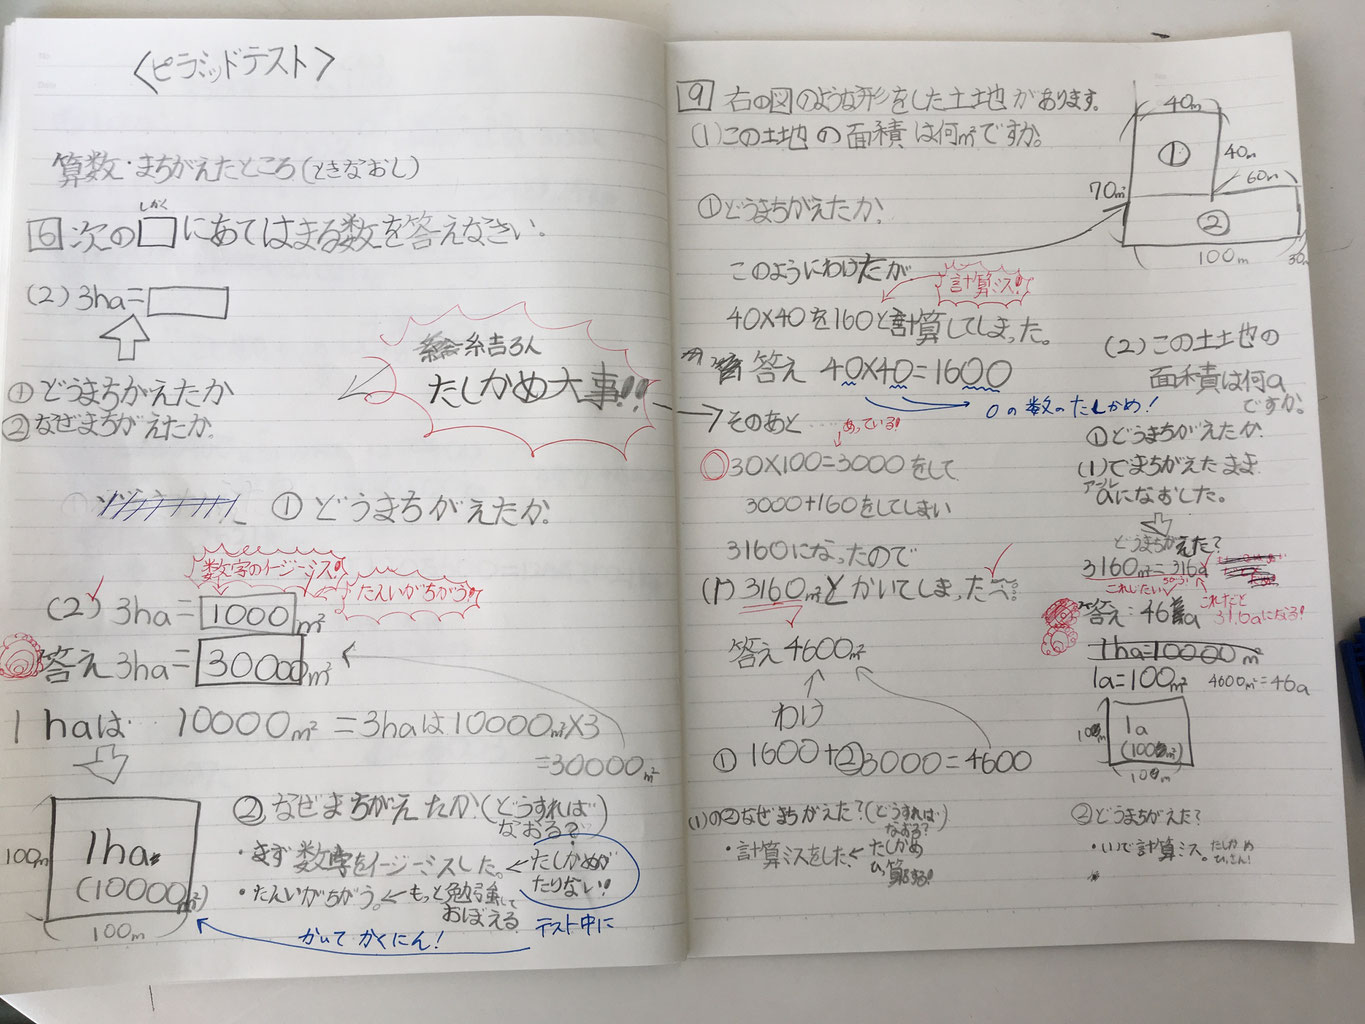 <ピラミッドテスト>
算数・まちがえたところ(ときなおし)
しかく
6 次の□にあてはまる数を答えなさい。
(2) 3ha=
①どうまちがえたか
②なぜまちがえたか。
結ろん
たしかめ大事!!
① どうまちがえたか。
数字のイージーミス!
たんいがちがう!
(2) 3ha= 1000 m²
答え 3ha= 30000 m²
1haは 10000m² = 3haは10000m²×3
=30000m²
100m
1ha
(10000m²)
100m
② なぜまちがえたか(どうすればなおる?)
・まず数字をイージーミスした。←たしかめがたりない!
・たんいがちがう。←もっと勉強しておぼえる
テスト中に
かいてかくにん!
9 右の図のような形をした土地があります。
(1)この土地の面積は何m²ですか。
40m
①
40m
60m
70m²
②
100m
30m
①どうまちがえたか。
このようにわけたが
計算ミス!
40×40を160と計算してしまった。
答え 40×40=1600
0の数のたしかめ!
そのあと
あっている!
30×100=3000をして
3000+160をしてしまい
3160になったので
(1) 3160m²とかいてしまった
答え4600m²
わけ
① 1600+②3000=4600
(1)の②なぜまちがえた?(どうすればなおる?)
・計算ミスをした←たしかめ
ひっ算する!
(2)この土地の
面積は何a
ですか。
①どうまちがえたか。
(1)でまちがえたまま
アール
aになおした。
どうまちがえた?
3160m²=316a
これしたい
これだと
31.6aになる!
答え:46a
1ha=10000m²
1a=100m² 4600m²=46a
10m
1a
(100m²)
10m
②どうまちがえた?
・(1)で計算ミス。たしかめ
ひっさん!